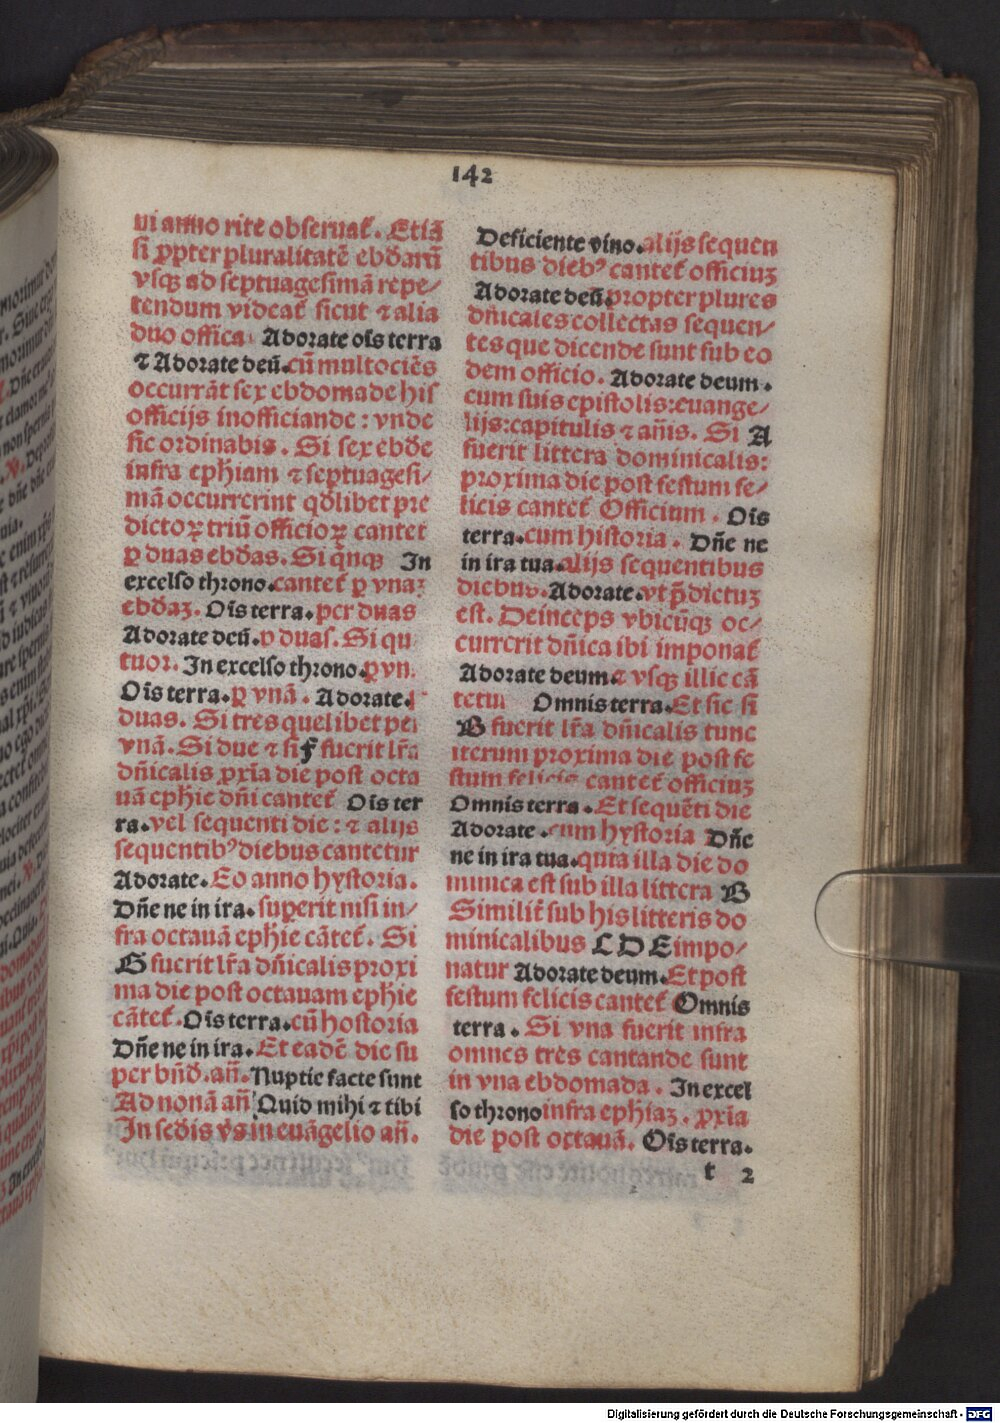 142
vi anno rite obseruat̃. Etiã
si ꝓpter pluralitatẽ ebdãrũ
vsqꝫ ad septuagesimã repe⸗
tendum videat̃ sicut ⁊ alia
duo officia Adorate oĩs terra
⁊ Adorate deũ. cũ multociẽs
occurrãt sex ebdomade his
officijs inofficiande : vnde
sic ordinabis. Si sex ebde
infra ephiam ⁊ septuagesi⸗
mã occurrerint qdlibet pre
dictoꝝ triũ officioꝝ cantet
ꝑ duas ebdas. Si qnqꝫ In
excelso throno. cantet̃ ꝑ vnaꝫ
ebdaꝫ. Oĩs terra. per duas
Adorate deũ. duas. Si qu
tuor. In excelso throno. ꝑ vn.
Oĩs terra. ꝑ vnã. Adorate.
duas. Si tres quelibet per
vnã. Si due ⁊ si F fuerit lr̃a
dñicalis ꝓxĩa die post octa
uã ephie dñi cantet̃ Oĩs ter
ra. vel sequenti die : ⁊ alijs
sequentibꝰ diebus cantetur
Adorate. Eo anno hystoria.
Dñe ne in ira. superit nisi in⸗
fra octauã ephie cãtet̃. Si
G fuerit lr̃a dñicalis proxi
ma die post octauam ephie
cãtet̃. Oĩs terra. cũ hostoria
Dñe ne in ira. Et eadẽ die su
per bñd. añ. Nuptie facte sunt
Ad nonã añ Quid mihi ⁊ tibi
In sedis vs in euãgelio añ.
Deficiente vino. alijs sequen
tibus diebꝰ cantet̃ officiuꝫ
Adorate deũ. propter plures
dñicales collectas sequen⸗
tes que dicende sunt sub eo
dem officio. Adorate deum.
cum suis epistolis: euange⸗
lijs: capitulis ⁊ añis. Si A
fuerit littera dominicalis:
proxima die post festum fe⸗
licis cantet̃ Officium. Oĩs
terra. cum historia. Dñe ne
in ira tua. alijs sequentibus
diebus. Adorate. vt p̃dictuꝫ
est. Deinceps vbicũqꝫ oc⸗
currerit dñica ibi imponat̃
Adorate deum. ⁊ vsqꝫ illic cã
tetur Omnis terra. Et sic si
B fuerit lr̃a dñicalis tunc
iterum proxima die post fe
stum felicis cantet̃ officiuꝫ
Omnis terra. Et sequẽti die
Adorate. cum hystoria Dñe
ne in ira tua. quia illa die do
minica est sub illa littera B
Similit̃ sub his litteris do
minicalibus C D E impo⸗
natur Adorate deum. Et post
festum felicis cantet̃ Omnis
terra. Si vna fuerit infra
omnes tres cantande sunt
in vna ebdomada. In excel
so throno infra ephiaꝫ. ꝓxĩa
die post octauã. Oĩs terra.
t 2
Digitalisierung gefördert durch die Deutsche Forschungsgemeinschaft - DFG